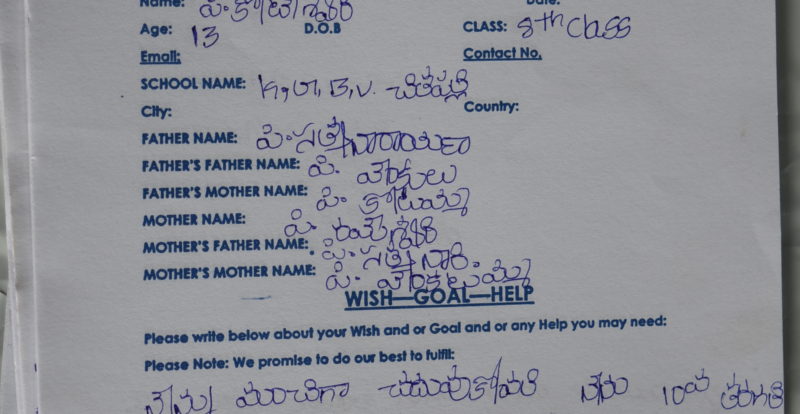 Name: పి. కోటేశ్వరి Date:
Age: 13 D.O.B CLASS: 8th Class
Email: Contact No.
SCHOOL NAME: K.G.B.V.
City: Country:
FATHER NAME: పి. సత్యనారాయణ
FATHER'S FATHER NAME: పి.
FATHER'S MOTHER NAME: పి. కోటమ్మ
MOTHER NAME: పి.
MOTHER'S FATHER NAME: పి.
MOTHER'S MOTHER NAME: పి.
WISH—GOAL—HELP
Please write below about your Wish and or Goal and or any Help you may need:
Please Note: We promise to do our best to fulfil:
మంచిగా చదువుకోవాలి నేను 10వ తరగతి